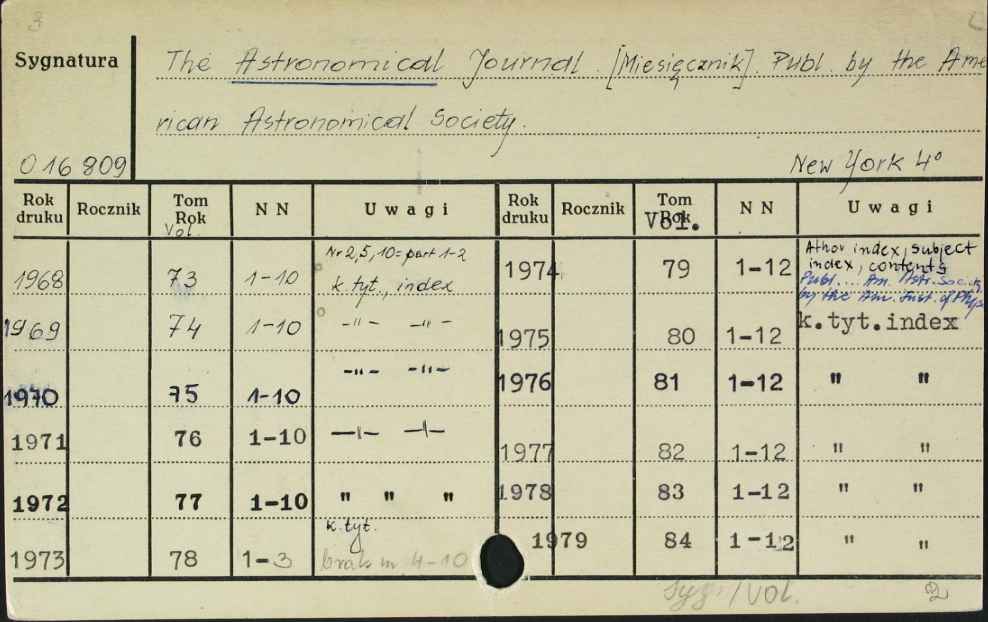 3
Sygnatura The Astronomical Journal. [Miesięcznik]. Publ. by the Ame
rican Astronomical Society.
016 809 New York 4°
Rok druku Rocznik Tom Rok Vol. N N Uwagi Rok druku Rocznik Tom Rok Vol. N N Uwagi
1968 73 1-10 Nr 2,5,10=part 1-2 k. tyt., index 1974 79 1-12 Athor index, subject index, contents Publ... Am. Astr. Society by the Am. Inst. of Phys
1969 74 1-10 -"- -"- 1975 80 1-12 k.tyt.index
1970 75 1-10 -"- -"- 1976 81 1-12 " "
1971 76 1-10 -"- -"- 1977 82 1-12 " "
1972 77 1-10 " " " 1978 83 1-12 " "
1973 78 1-3 k. tyt. brak nr 4-10 1979 84 1-12 " "
/Vol. 2